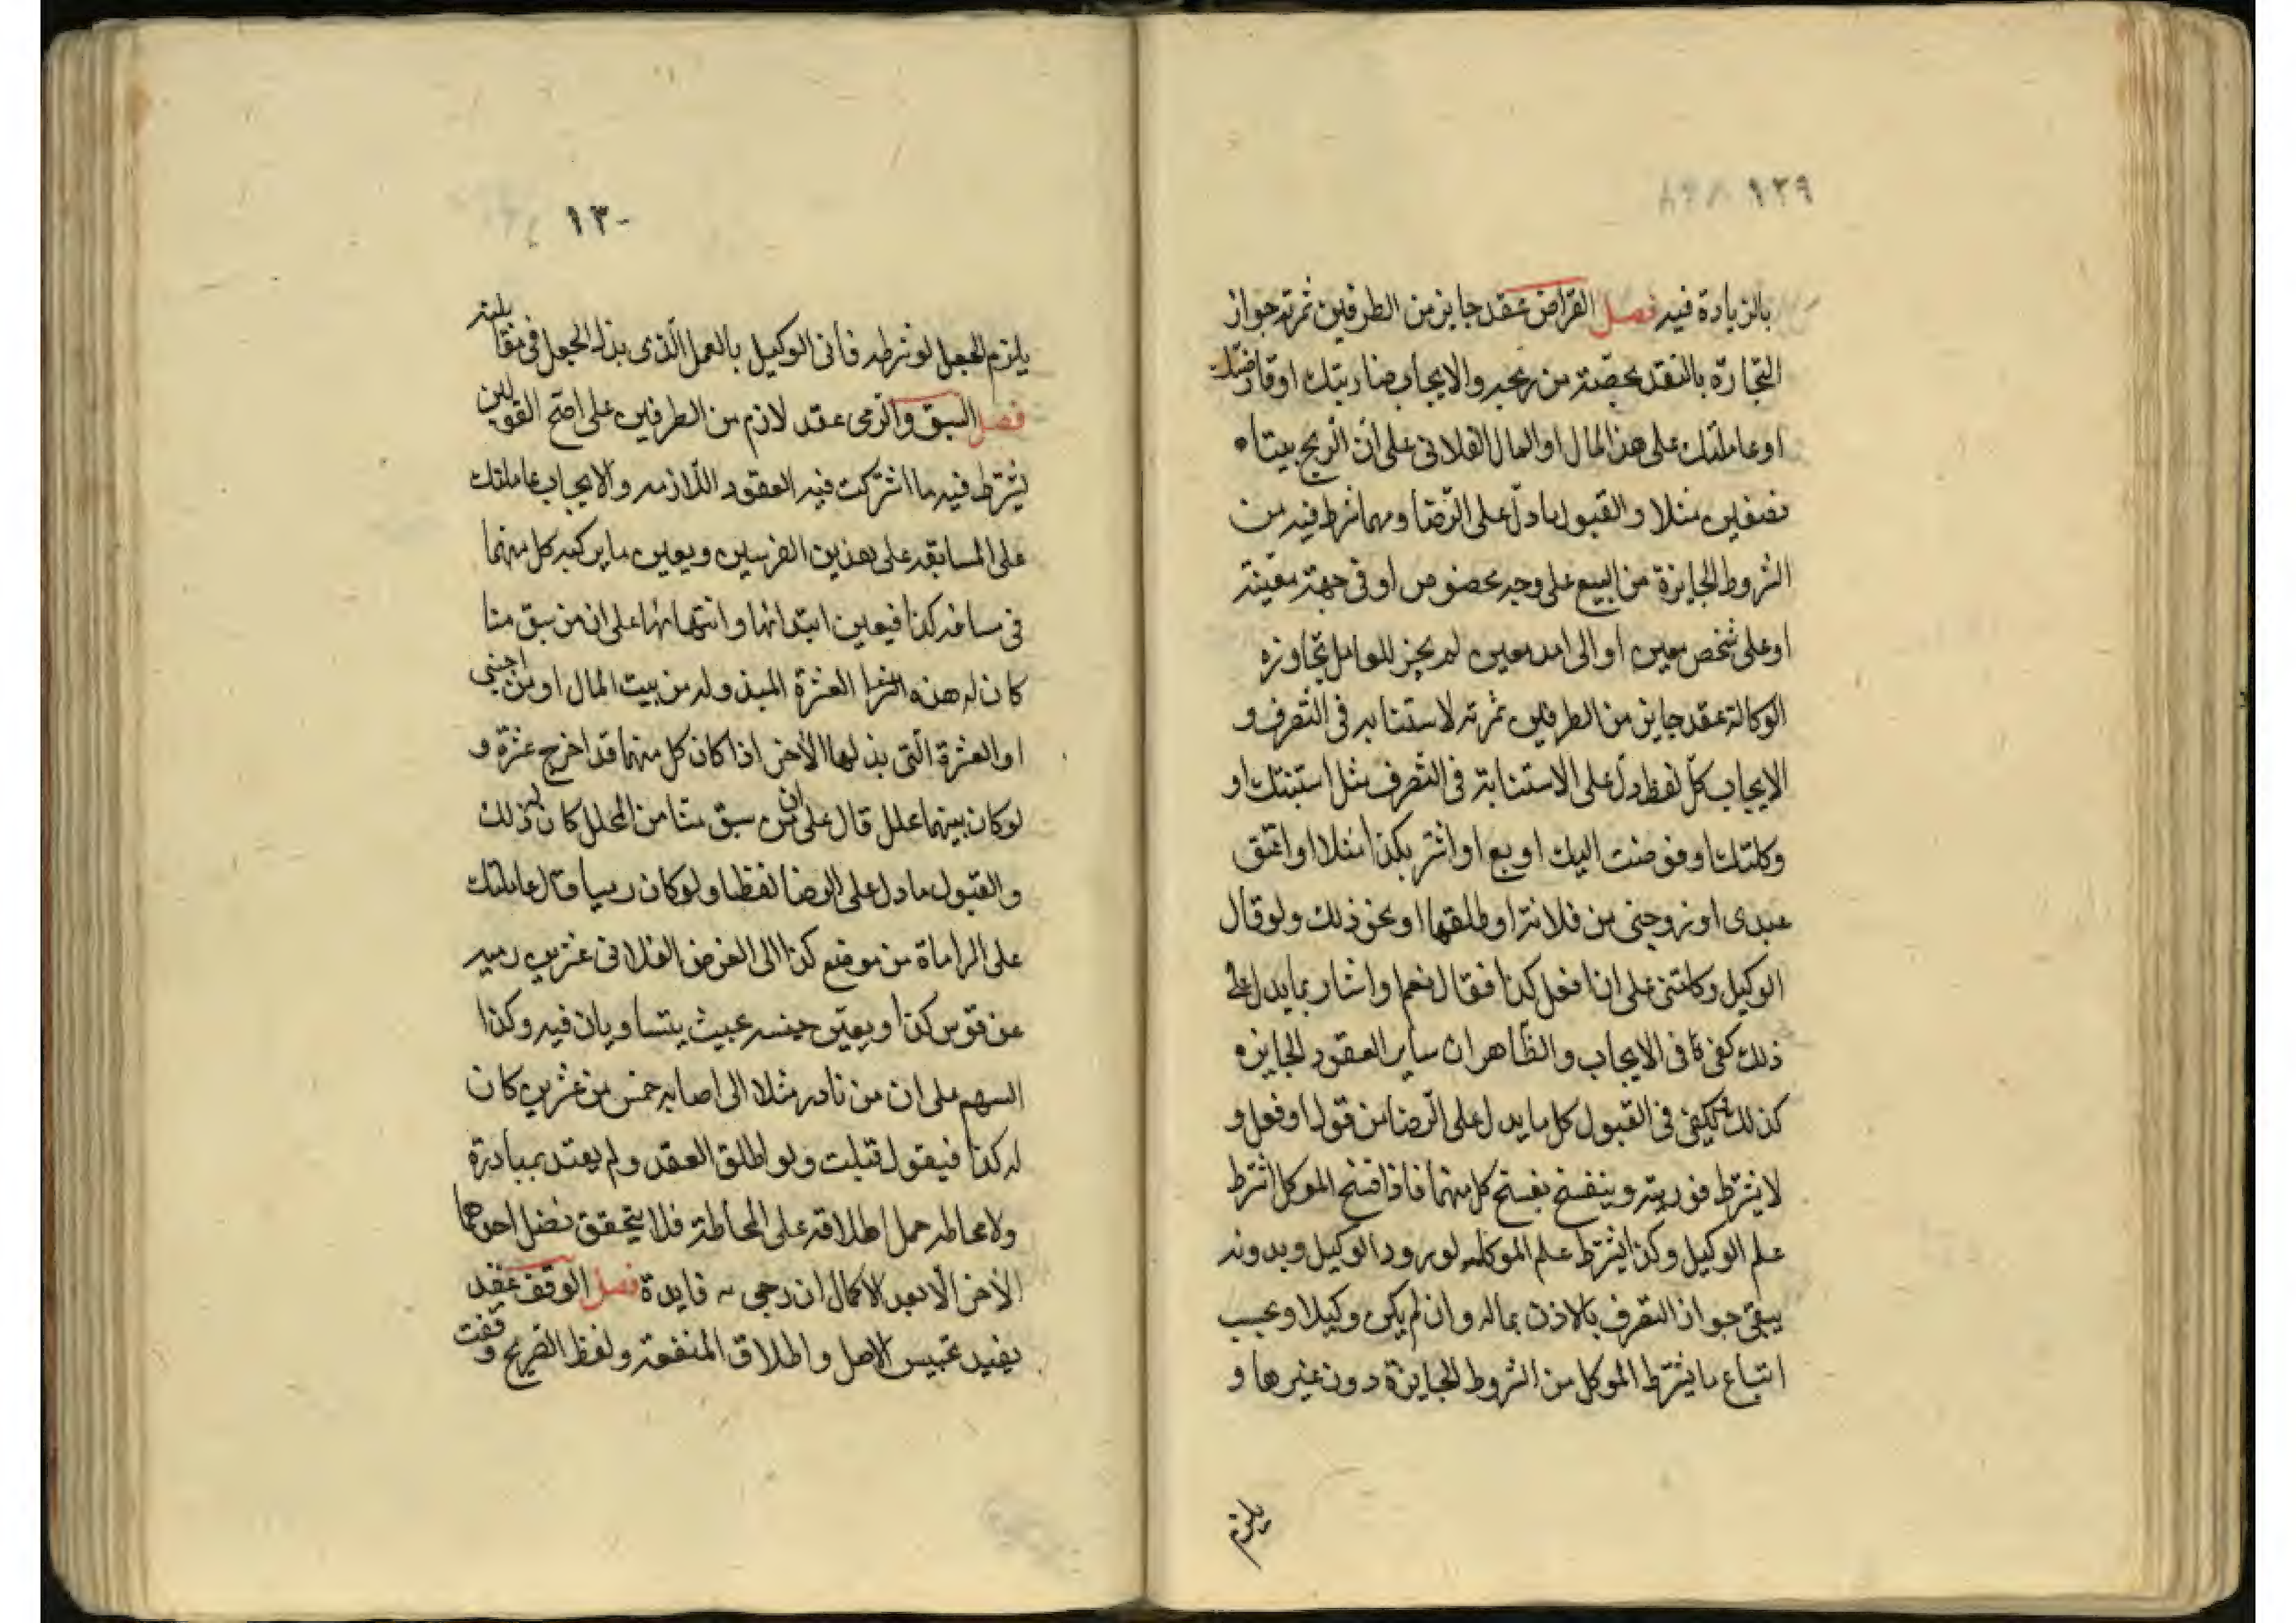 ١٢٩
بالزيادة فيه فصل القراض عقد جايز من الطرفين ثمرته جواز
التجارة بالنقد بحصّة من ربحه والايجاب ضاربتك او قارضتك
او عاملتك على هذا المال او المال الفلانى على ان الربح بيننا
نصفين مثلا والقبول ما دلّ على الرّضا ومهما شرط فيه من
الشروط الجايزة من البيع على وجه مخصوص او فى جهة معيّنة
او على شخص معين او الى امد معين لم يجز للعامل تجاوزه
الوكالة عقد جايز من الطرفين ثمرته لاستنابه فى التصرف و
الايجاب كلّ لفظ دلّ على الاستنابة فى التصرف مثل استنبتك او
وكلتك او فوضت اليك او بع او اشتر بكذا مثلا او اعتق
عبدى او زوجنى من فلانة او طلقها او نحو ذلك ولو قال
الوكيل وكلتنى على ان افعل كذا فقال نعم او اشار بما يدل على
ذلك كفى فى الايجاب والظّاهر ان ساير العقود الجايزه
كذلك ويكفى فى القبول كل ما يدل على الرّضا من قول او فعل و
لا يشترط فوريته وينفسخ بفسخ كل منهما فاذا فسخ الموكل اشترط
علم الوكيل وكذا يشترط علم الموكل لو رد الوكيل وبدونه
يبقى جواز التصرف بالاذن بماله وان لم يكن وكيلا ويجب
اتباع ما يشترط الموكل من الشروط الجايزة دون غيرها و
يلزم
١٣٠
يلزم الجعل لو شرطه فأتى الوكيل بالعمل الّذى بذل الجعل فى مقابلته
فصل السبق والرّمى عقد لازم من الطرفين على اصحّ القولين
يشترط فيه ما اشتركت فيه العقود اللّازمه والايجاب عاملتك
على المسابقه على هذين الفرسين ويعين ما يركبه كل منهما
فى مسافه كذا فيعين ابتدائها وانتهائها على ان من سبق منا
كان له هذه العشرة المبذوله من بيت المال او من اجنبى
او العشرة الّتى بذلها الأخر اذا كان كل منهما قد اخرج عشرة و
لو كان بينهما محلل قال على ان من سبق منّا من المحلل كان له ذلك
والقبول ما دل على الرضا لفظا ولو كان رميا قال عاملتك
على الراماة من موضع كذا الى الغرض الفلانى عشرين رميه
عن قوس كذا ويعيّن جنسه بحيث يتساويان فيه وكذا
السهم على ان من نادر مثلا الى اصابه خمس من عشرين كان
له كذا فيقول قبلت ولو اطلق العقد ولم يعتد بمبادرة
ولا محاطه حمل اطلاقه على المحاطة فلا يتحقق نضل احدهما
الأخر الّا بعد الاكمال ان رجى به فايدة فصل الوقف عقد
يفيد تحبيس الاصل واطلاق المنفعة ولفظ الصّريح وقفت